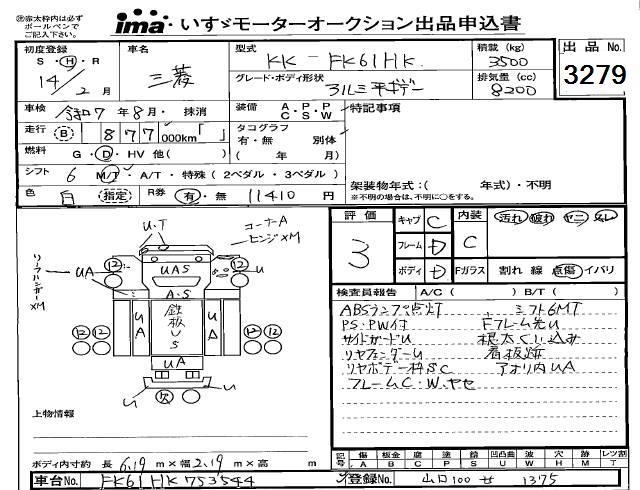 ※太枠内は必ず
ボールペンで
ご記入下さい。
ima いすゞモーターオークション出品申込書
初度登録
S ・ H ・ R
14 / 2 月
車名
三菱
型式
KK - FK61HK
グレード・ボディ形状
アルミ平ボデー
積載 (kg)
3500
排気量 (cc)
8200
出品 No.
3279
車検 令和7 年 8 月・ 抹消
装備 A ・ P ・ P
C ・ S ・ W
特記事項
走行 B 877 000km「 」
タコグラフ
有・無 別体
( 年 月)
燃料 G ・ D ・ HV 他( )
シフト 6 M/T ・ A/T ・ 特殊 ( 2ペダル ・ 3ペダル )
色 白 (指定) R券 有・無 11410 円
架装物年式:( 年式)・不明
※不明の場合は、不明に○をする。
U・T
コーナーA
ヒンジXM
リーフハンガーXM
UA 12 12 U
UAS
A・S
UA 鉄板US UA
12 12 12 12
UA
U 欠 U
上物情報
ボディ内寸約 長 6.19 m × 幅 2.19 m × 高 m
車台No. FK61HK753544
評価
3
キャブ C
フレーム D
ボディ D
内装 C
Fガラス
汚れ 破れ ヤニ スレ
割れ 線 点傷 イバリ
検査員報告 A/C ( ) B/T ( )
ABSランプ点灯 シフト6MT
PS・PW付 Fフレーム先U
サイドガードU 根太くい込み
リヤフェンダーU 看板跡
リヤボデー枠SC アオリ内UA
フレームC・W・ヤセ
記号 傷 板金 腐 塗 凹 凹凸曲 波 穴 欠 レツ割
A B C P S U W H M T
登録No. 山口100 せ 1375